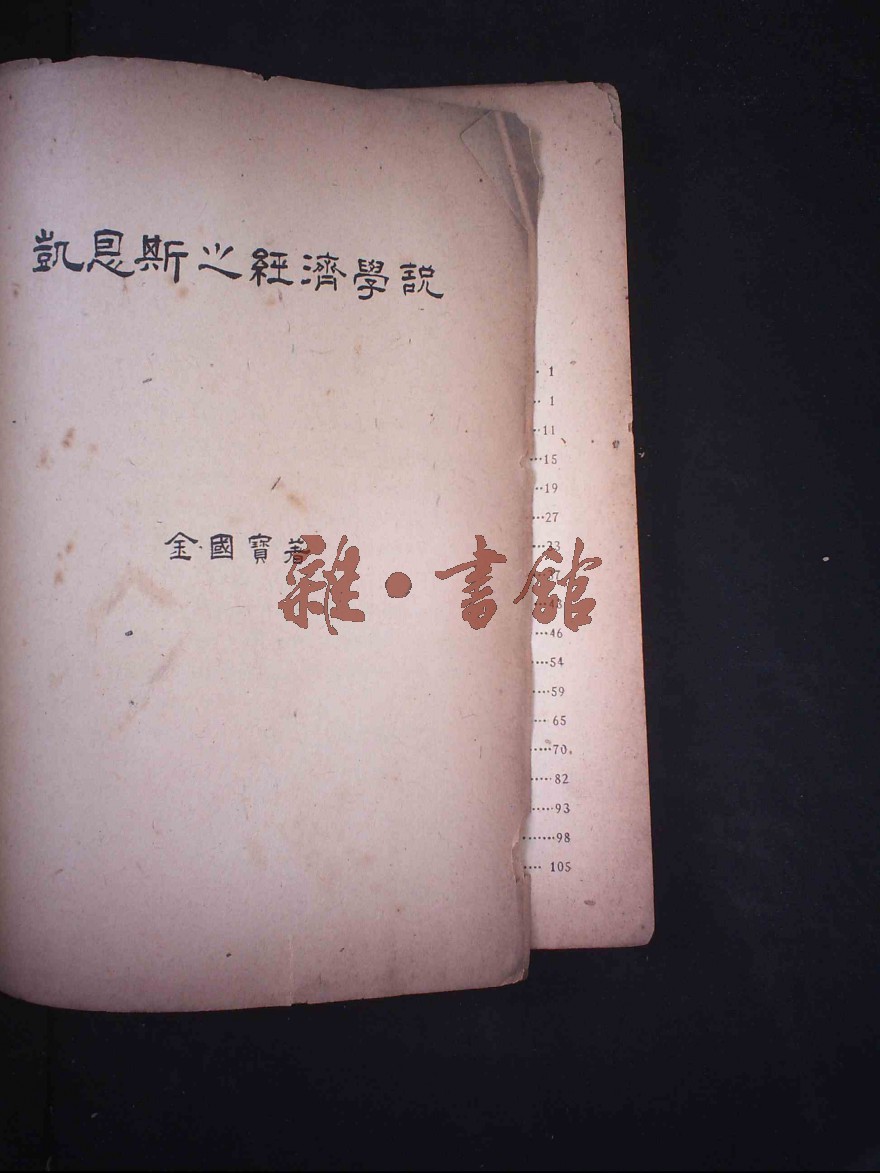 凱恩斯之經濟學說
金國寶著
雜·書館
1
1
11
15
19
27
33
43
46
54
59
65
70
82
93
98
105